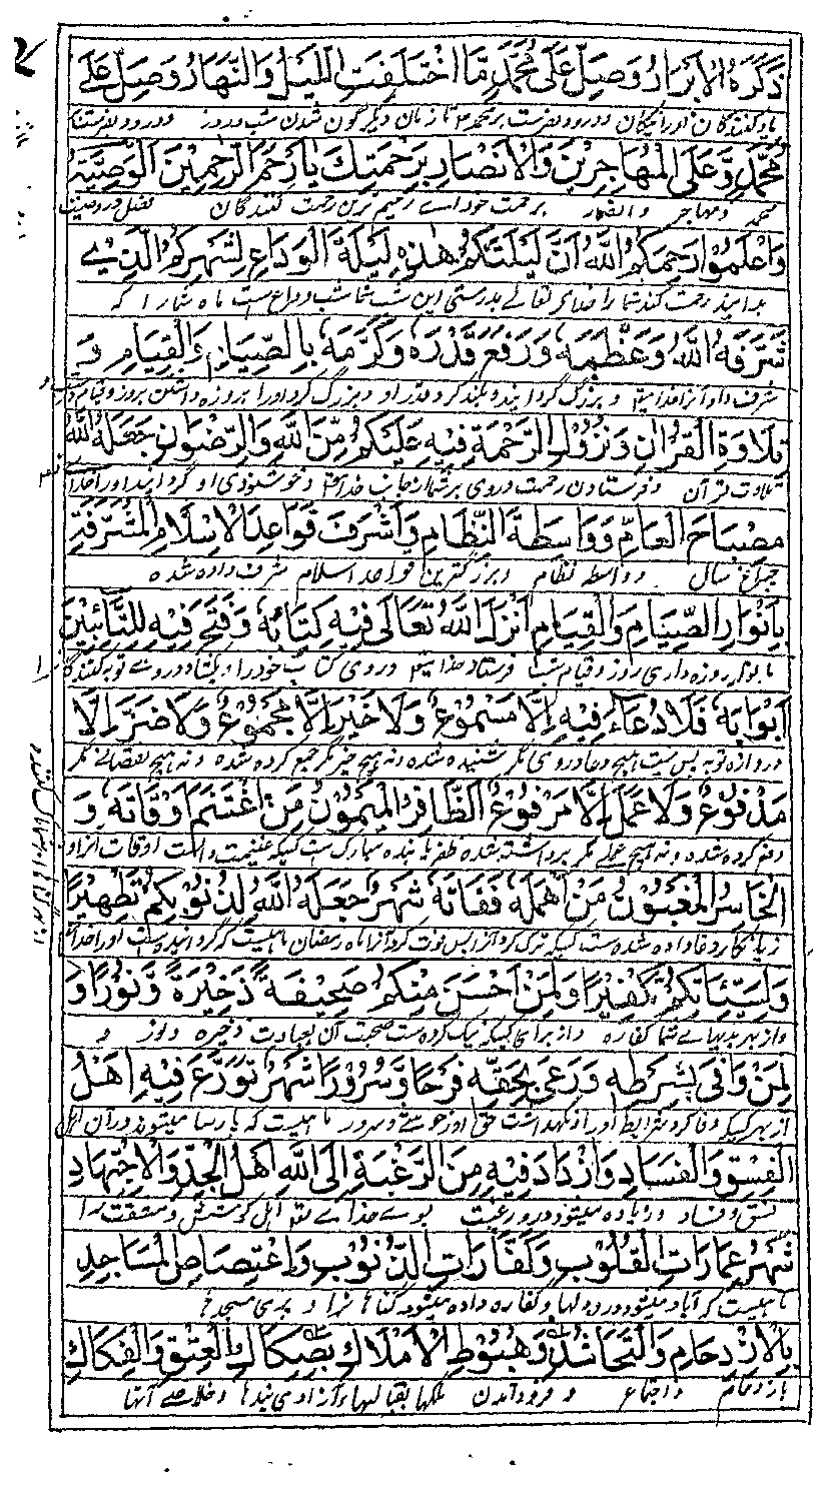 ذَكَرَهُ الْأَبْرَارُ وَصَلِّ عَلَى مُحَمَّدٍ مَا اخْتَلَفَتِ اللَّيْلُ وَالنَّهَارُ وَصَلِّ عَلَى
یادکنندگان او را نیکان و درود بفرست بر محمد تا زمان دیگرگون شدن شب و روز و درود بفرست
مُحَمَّدٍ وَعَلَى الْمُهَاجِرِينَ وَالْأَنْصَارِ بِرَحْمَتِكَ يَا أَرْحَمَ الرَّاحِمِينَ الْوَصِيَّةُ
محمد و مهاجر و انصار برحمت خود اے رحیم ترین رحمت کنندگان فصل در وصیت
وَاعْلَمُوا رَحِمَكُمُ اللَّهُ أَنَّ لَيْلَتَكُمْ هَذِهِ لَيْلَةُ الْوَدَاعِ لِشَهْرِكُمُ الَّذِي
بدانید رحمت کند شما را خدای تعالے بدرستی این شب شما شب وداع است ماه شما را که
شَرَّفَهُ اللَّهُ وَعَظَّمَهُ وَرَفَعَ قَدْرَهُ وَكَرَّمَهُ بِالصِّيَامِ وَالْقِيَامِ وَ
شرف داد آنرا خدا و بزرگ گردانید و بلند کرد قدر او و بزرگ کرد او را بروزه داشتن بروز و قیام
تِلَاوَةِ الْقُرْآنِ وَنُزُولِ الرَّحْمَةِ فِيهِ عَلَيْكُمْ مِنَ اللَّهِ وَالرِّضْوَانِ جَعَلَهُ اللَّهُ
تلاوت قرآن و فرستادن رحمت دروی بر شما از جانب خدا و خوشنودی او گردانید او را خدا
مِصْبَاحَ الْعَامِ وَوَاسِطَةَ النِّظَامِ وَأَشْرَفَ قَوَاعِدِ الْإِسْلَامِ الْمُشَرَّفَةِ
چراغ سال و واسطه نظام و بزرگترین قواعد اسلام شرف داده شده
بِأَنْوَارِ الصِّيَامِ وَالْقِيَامِ أَنْزَلَ اللَّهُ تَعَالَى فِيهِ كِتَابَهُ وَفَتَحَ فِيهِ لِلتَّائِبِينَ
بانوار روزه داری روز و قیام شب فرستاد خدا دروی کتاب خود را و بکشاد دروے توبه کنندگان را
أَبْوَابَهُ فَلَا دُعَاءَ فِيهِ إِلَّا مَسْمُوعٌ وَلَا خَيْرَ إِلَّا مَجْمُوعٌ وَلَا ضَرَّ إِلَّا
دروازه توبه پس نیست هیچ دعا دروی مگر شنیده شده و نه هیچ خیر مگر جمع کرده شده و نه هیچ نقصانے مگر
مَدْفُوعٌ وَلَا عَمَلَ إِلَّا مَرْفُوعٌ الظَّافِرُ الْمَيْمُونُ مَنِ اغْتَنَمَ أَوْقَاتَهُ وَ
دفع کرده شده و نه هیچ عملے مگر برداشته شده ظفر یابنده مبارک است کسیکه غنیمت دانست اوقات آنرا و
الْخَاسِرُ الْمَغْبُونُ مَنْ أَهْمَلَهُ فَفَاتَهُ شَهْرٌ جَعَلَهُ اللَّهُ لِذُنُوبِكُمْ تَطْهِيرًا
زیانکار دغا داده شده است کسیکه ترک کرد آنرا پس فوت کرد آنرا ماه رمضان ماهیست که گردانیده است او را خدا
وَلِسَيِّئَاتِكُمْ تَكْفِيرًا وَلِمَنْ أَحْسَنَ مِنْكُمْ صَحِيفَةً ذَخِيرَةً وَنُورًا وَ
و از بهر بدیهاے شما کفاره و از برای کسیکه نیک کرده است صحبت آن بعبادت ذخیره و نور و
لِمَنْ وَافَى بِشَرْطِهِ وَرَعَى بِحَقِّهِ فَرَحًا وَسُرُورًا شَهْرٌ تَوَرَّعَ فِيهِ أَهْلُ
از بهر کسیکه وفا کرد بشرایط او را و نگهداشت حق او خوشے و سرور ماهیست که پارسا میشوند در آن اهل
الْفِسْقِ وَالْفَسَادِ وَازْدَادَ فِيهِ مِنَ الرَّغْبَةِ إِلَى اللَّهِ أَهْلُ الْجِدِّ وَالْاجْتِهَادِ
فسق و فساد و زیاده میشود در و رغبت بسوے خداے تعا اهل کوشش و مشقت را
شَهْرُ عِمَارَاتِ الْقُلُوبِ وَكَفَّارَاتِ الذُّنُوبِ وَاخْتِصَاصِ الْمَسَاجِدِ
ماهیست که آباد میشود در و دلها و کفاره داده میشود گناها را و پری مسجد
بِالْازْدِحَامِ وَالتَّحَاشُدِ وَهُبُوطِ الْأَمْلَاكِ بِصِكَاكِ الْعِتْقِ وَالْفِكَاكِ
بازدحام و اجتماع و فرود آمدن ملکها بقبالهاء آزادی بندها و خلاصے آنها